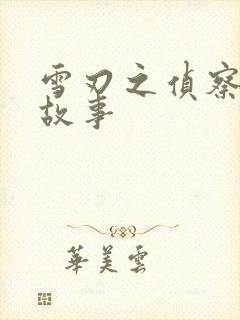 雪刃之偵察
故事
華美雲